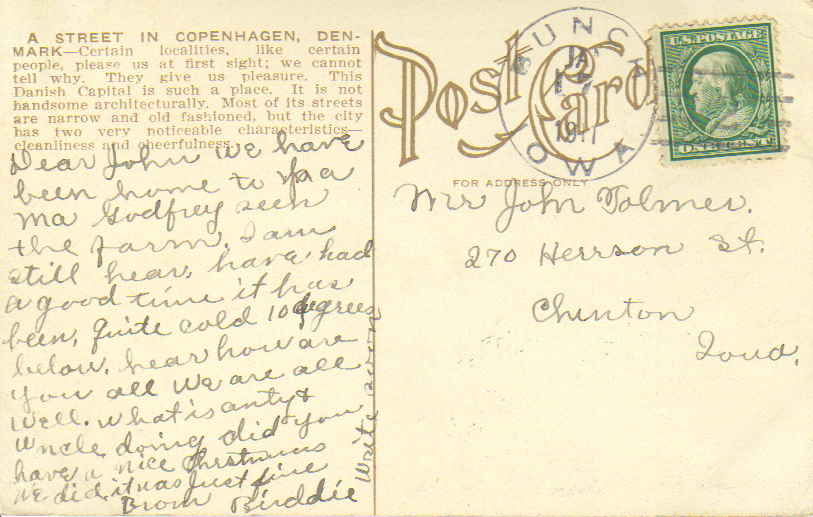 A STREET IN COPENHAGEN, DEN-
MARK—Certain localities, like certain
people, please us at first sight; we cannot
tell why. They give us pleasure. This
Danish Capital is such a place. It is not
handsome architecturally. Most of its streets
are narrow and old fashioned, but the city
has two very noticeable characteristics—
cleanliness and cheerfulness.
Dear John we have
been home to Pa
Ma Godfrey seen
the farm. I am
still hear, have had
a good time it has
been, quite cold 10 degrees
below. hear how are
you all we are all
well. what is anty &
Uncle doing did you
have a nice Chrstmas
we did, it was just fine
From Birddie
Write soon
Post Card
FOR ADDRESS ONLY
JA
1911
IOWA
U.S. POSTAGE
ONE CENT
Mr John Tolmer.
270 Herrson St.
Clinton
Ioua.